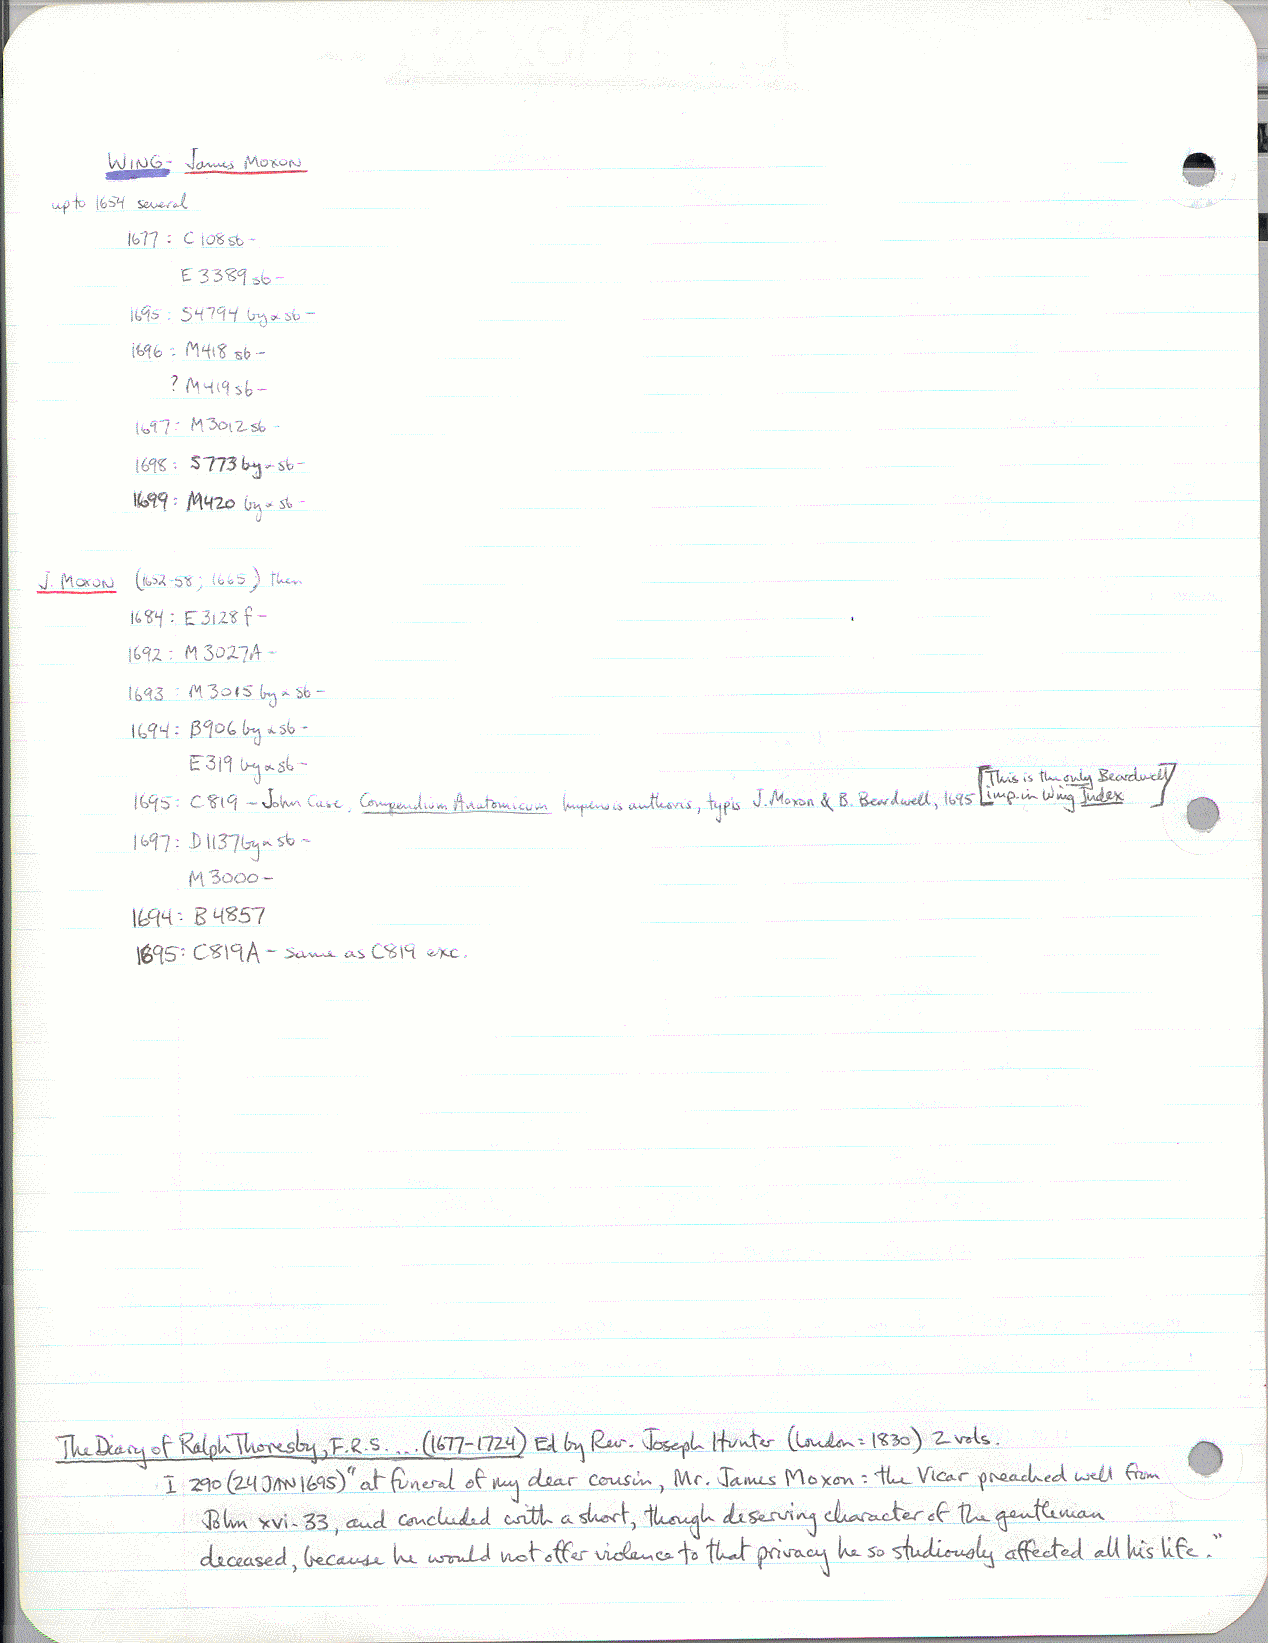 WING - James MOXON
up to 1654 several
1677: C108 sb -
E3389 sb -
1695: S4794 by & sb -
1696: M418 sb -
? M419 sb -
1697: M3012 sb -
1698: S773 by & sb -
1699: M420 by & sb -
J. MOXON (1652-58; 1665) then
1684: E3128 f -
1692: M3027A -
1693: M3015 by & sb -
1694: B906 by & sb -
E319 by & sb -
[This is the only Beardwell
1695: C819 - John Case. Compendium Anatomicum Impensis authoris, typis J. Moxon & B. Beardwell, 1695 imp. in Wing Index]
1697: D1137 by & sb -
M3000 -
1694: B4857
1695: C819A - same as C819 exc.
The Diary of Ralph Thoresby, F.R.S. ... (1677-1724) Ed by Rev. Joseph Hunter (London: 1830) 2 vols.
I 290 (24 JAN 1695) "at funeral of my dear cousin, Mr. James Moxon: the Vicar preached well from
John xvi. 33, and concluded with a short, though deserving character of the gentleman
deceased, because he would not offer violence to that privacy he so studiously affected all his life."